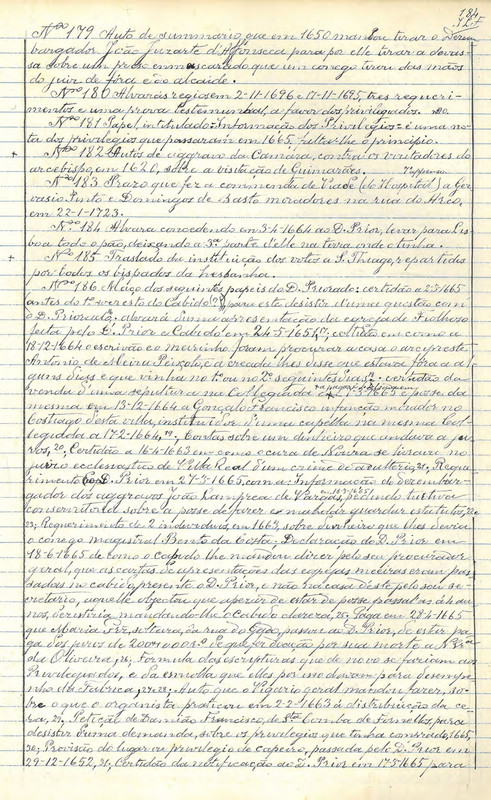 184
Nº 179 Auto de summario que em 1650 mandou tirar o Desem
bargador João Juzarte d'Affonseca para por elle tirar a devas
sa sobre um preso enmascarado que um conego tirou das mãos
do juiz de fóra e do alcaide.
Nº 180 Alvarás regios em 2-11-1696 e 17-11-1695, tres requeri-
mentos e uma prova testemunhal, a favor dos privilegiados.
Nº 181 Papel, intitulado = Informação dos Privilegios = é uma no-
ta dos privilegios que passaram em 1665, falta-lhe o principio.
+ Nº 182 Autos de aggravo da Camara, contra os visitadores do
arcebispo, em 1620, sobre a visitação de Guimarães.
Nº 183 Prazo que fez a commenda de Viade (do Hospital) a Ger
vasio Pinto e Domingos de Basto moradores na rua do Arco,
em 22-1-1723.
Nº 184 Alvará concedendo em 3-4-1664 ao D. Prior, levar para Lis
boa todo o pão, deixando a 3ª parte d'elle na terra onde o tinha.
+ Nº 185 Traslado da instituição dos votos a S. Thiago, repartidos
por todos os bispados da Hespanha.
Nº 186 Maço dos seguintes papeis do D. Priorado: certidão a 2-3-1665
antes do 1º verso do Cabido (?) para este desistir d'uma questão com
o D. Priorado; alvará d'uma apresentação da egreja de Fralhoso
feita pelo D. Prior e Cabido em 24-5-1657; certidão em como a
18-12-1664 o escrivão e o meirinho foram procurar a casa o arcypreste
Antonio de Meira Peixoto, e a creada lhes disse que estava fóra a al-
guns dias e que vinha no 1º ou no 2º seguintes dias; certidão da
venda d'uma sepultura na Collegiada 1663 e posse da
mesma em 13-12-1664 a Gonçalo Francisco infanção morador no
Costiago desta villa, instituidor d'uma capella na mesma Col-
legiada a 17-2-1664; Contas sobre um dinheiro que andava a ju-
ros, 20, Certidão a 16-4-1663 em como o cura de Moura se livrou no
juizo ecclesiastico de Villa Real d'um crime de adulterio; 21, Reque
rimento do D. Prior em 27-3-1665, com a: Informação do dezembar-
gador dos aggravos João Lampreia de Vargas, pedindo tuitiva
conservatoria sobre a posse de fazer e mandar guardar estatutos, 22 e
23; Requerimento de 2 individuos, em 1663, sobre dinheiro que lhes devia
o conego magistral Bento da Costa; Declaração do D. Prior em
18-6-1665 de como o Cabido lhe mandou dizer pelo seu procurador
geral, que as cartas de apresentações das egrejas meiras eram pas-
sadas no cabido, presente o D. Prior, e não na casa d'este pelo seu se-
cretario, aquelle objectou que apezar de estar de posse passal-as ás ba-
nos, desistiria mandando-lhe o Cabido clareza, 25; Paga em 28-4-1665
que Maria Frz, solteira, da rua do Gado, passou ao D. Prior, de estar pa-
ga dos juros de 200$000 rs. de que fez doação por sua morte a N. Srª
da Oliveira, 26; Formula das escripturas que de novo se faziam aos
Privilegiados, e da esmolla que elles por isso davam para desempe-
nho da Fabrica, 27 e 28; Auto que o Vigario geral mandou fazer, so-
bre o que o organista praticou em 2-2-1663 á distribuição da ce-
ra, 29, Petição de Damião Francisco, de Stª Comba de Fornellos, para
desistir d'uma demanda, sobre os privilegios que tinha comsrado, 1665,
30; Provisão do lugar ou privilegio de capeiro, passada pelo D. Prior em
29-12-1652, 31; Certidão da notificação ao D. Prior em 17-3-1665 para